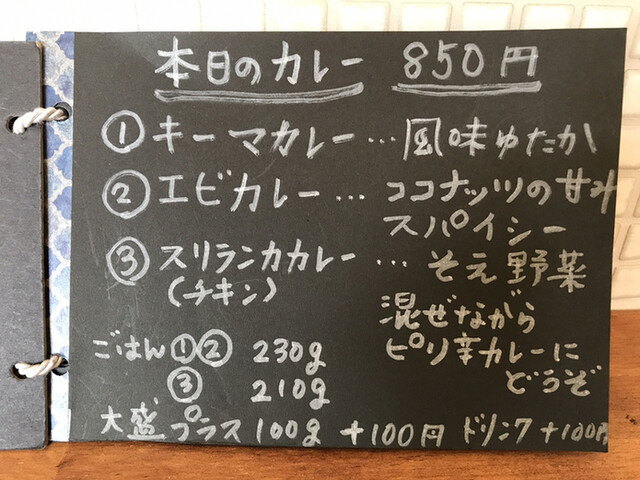 本日のカレー 850円
①キーマカレー…風味ゆたか
②エビカレー…ココナッツの甘み
スパイシー
③スリランカカレー…そえ野菜
(チキン)
混ぜながら
ピリ辛カレーに
どうぞ
ごはん①② 230g
③ 210g
大盛プラス100g +100円 ドリンク+100円